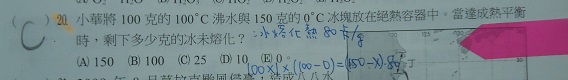 (C) 20. 小華將 100 克的 100°C 沸水與 150 克的 0°C 冰塊放在絕熱容器中。當達成熱平衡
時，剩下多少克的冰未熔化？ 冰熔化熱 80 卡/g
(A) 150 (B) 100 (C) 25 (D) 10 (E) 0
100×1×(100-0)=(150-X)·80